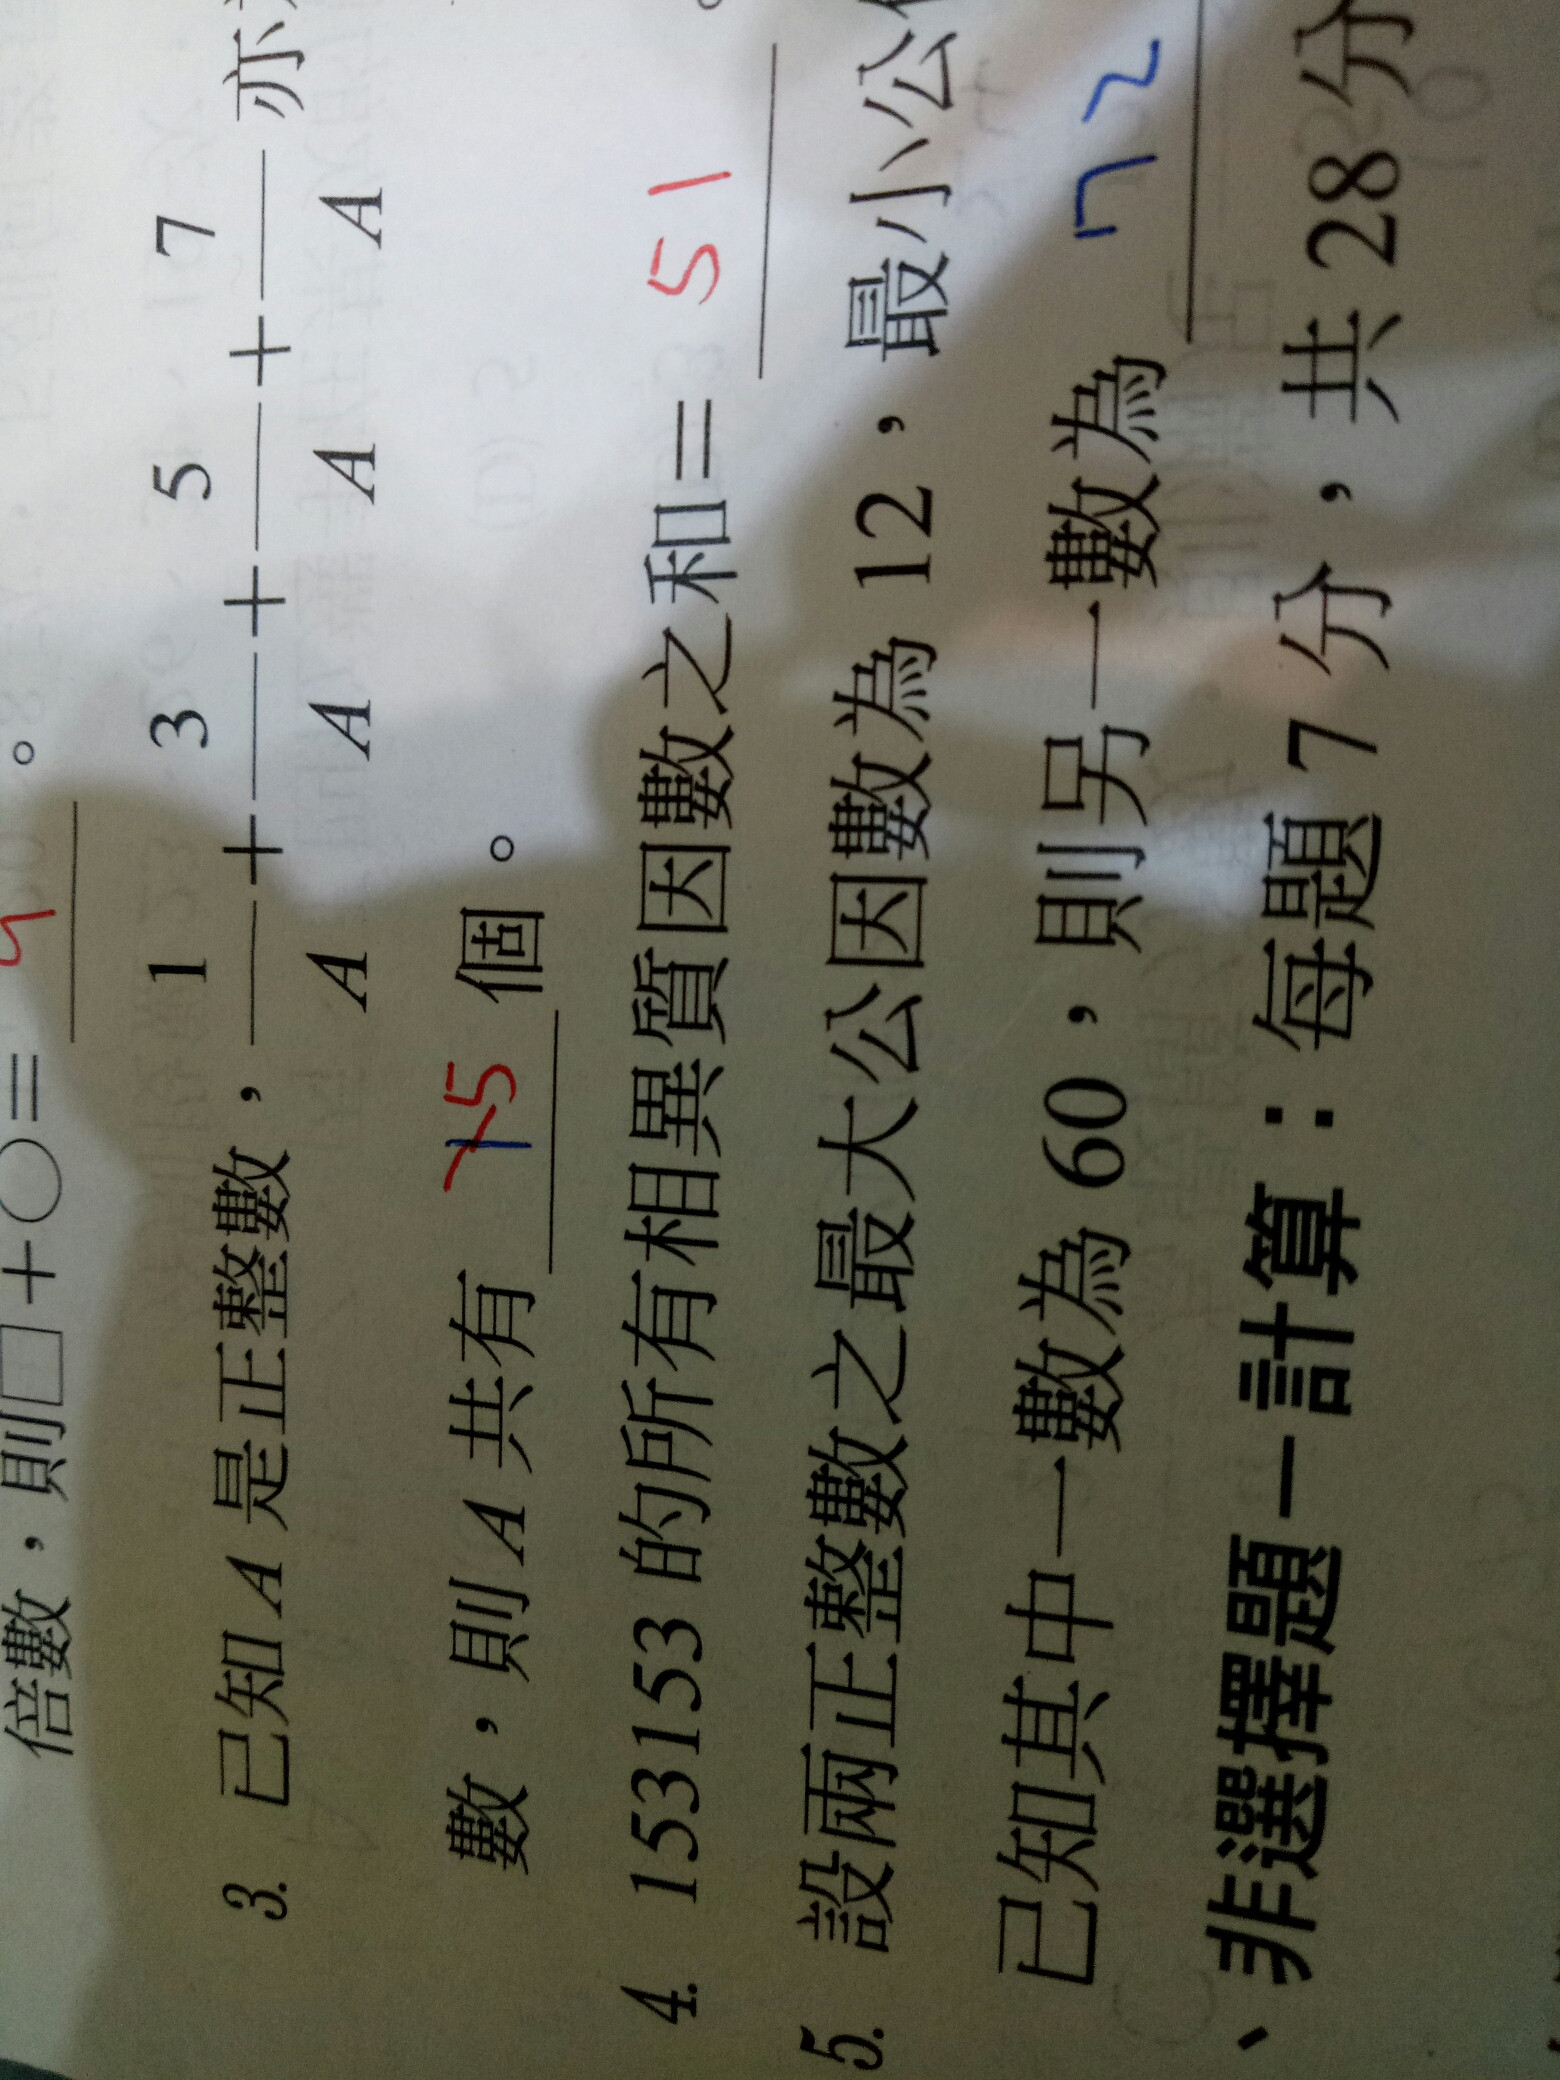 倍數，則□＋○＝ 。
3. 已知 A 是正整數，1/A＋3/A＋5/A＋7/A 亦
數，則 A 共有 5 個。
4. 153153 的所有相異質因數之和＝ 51 。
5. 設兩正整數之最大公因數為 12，最小公
已知其中一數為 60，則另一數為 72
、非選擇題－計算：每題 7 分，共 28 分